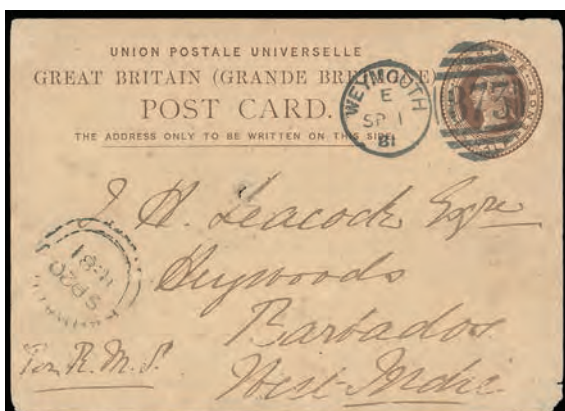 UNION POSTALE UNIVERSELLE
GREAT BRITAIN (GRANDE BRETAGNE)
POST CARD.
THE ADDRESS ONLY TO BE WRITTEN ON THIS SIDE.
WEYMOUTH
E
SP 1
81
873
J. H. Leacock Esqre
Heywoods
Barbados
West Indie
SP 20
81
Per R. M. S.